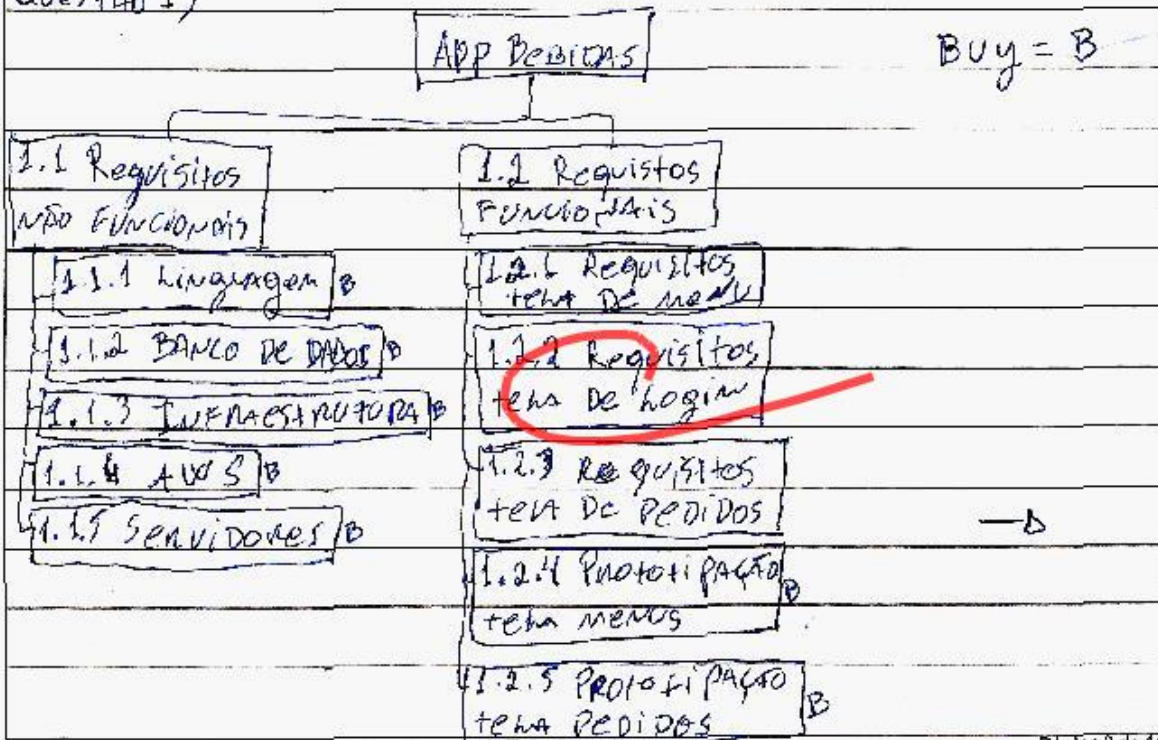 Questão 1)
App Bebidas
Buy = B
1.1 Requisitos
não funcionais
1.1.1 Linguagem B
1.1.2 Banco de dados B
1.1.3 Infraestrutura B
1.1.4 AWS B
1.1.5 Servidores B
1.2 Requistos
funcionais
1.2.1 Requisitos
tela de menu
1.2.2 Requisitos
tela de login
1.2.3 Requisitos
tela de pedidos
1.2.4 Prototipação B
tela menus
1.2.5 Prototipação B
tela pedidos